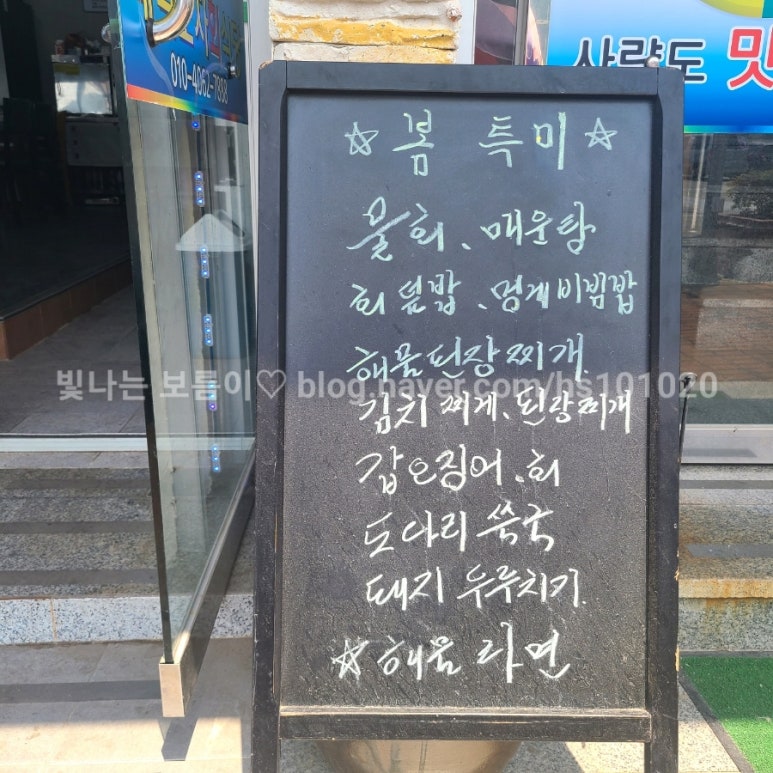 010-4062-7898
사량도 맛
☆ 봄 특미 ☆
물회、매운탕
회덮밥、멍게비빔밥
해물된장찌개
빛나는 보름이♡ blog.naver.com/hs101020
김치찌게、된장찌개
갑오징어、회
도다리쑥국
돼지두루치기
☆해물라면